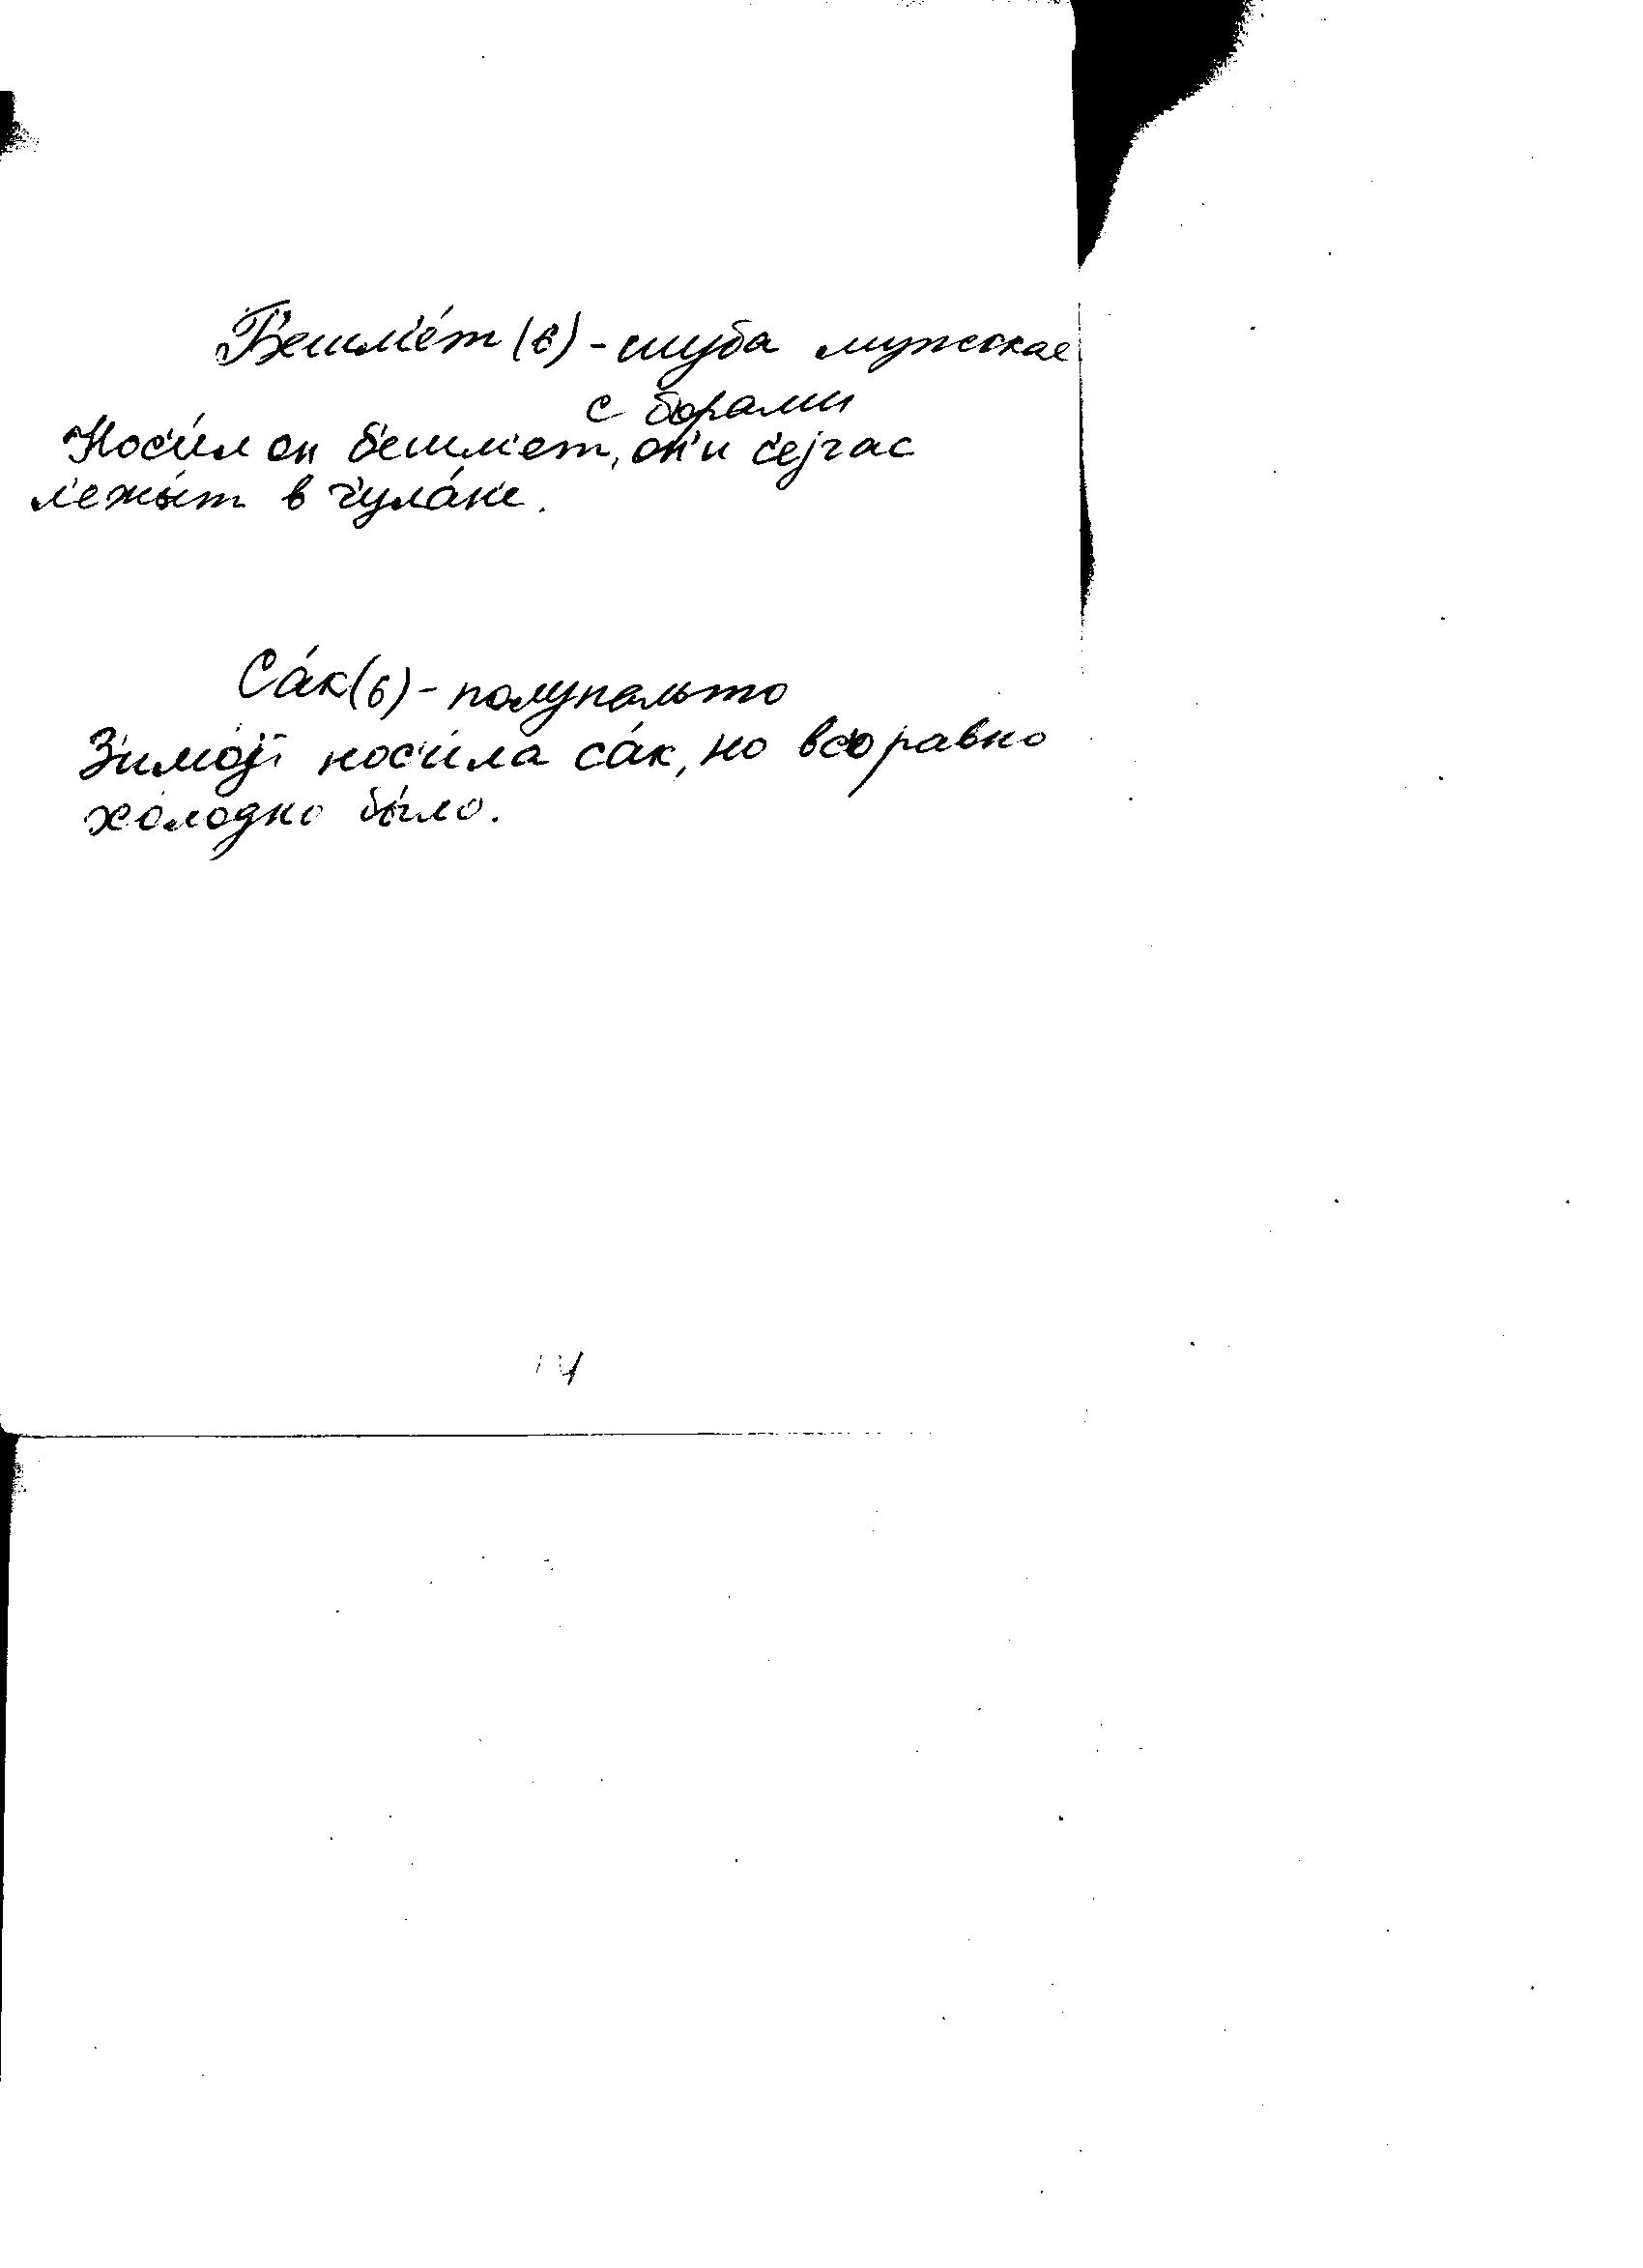 Б'ешм'е́т (6) - шуба мужская
с борами
Нос'и́л он б'ешм'ет, он'и с'ejчас
л'ежы́т в ч'ула́н'е.
Са́к (6) - полупальто
З'имо́j нос'и́ла са́к, но вс'о равно
хо́лодно бы́ло.